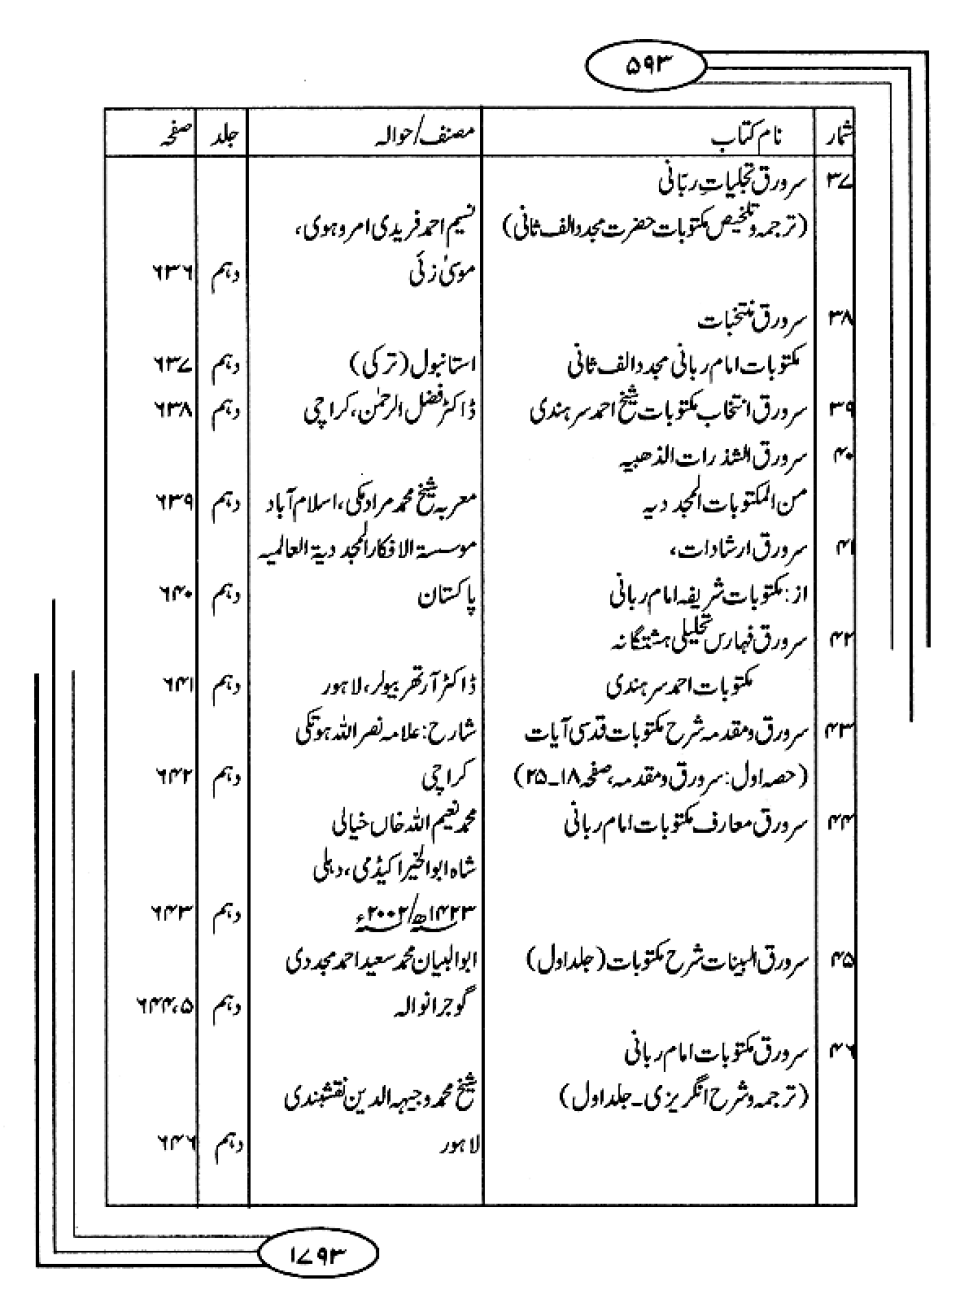 ۵۹۳
شمار نام کتاب مصنف/حوالہ جلد صفحہ
۳۷ سرورق تجلیاتِ ربّانی
(ترجمہ وتلخیص مکتوبات حضرت مجدد الف ثانی) نسیم احمد فریدی امروہوی،
موسیٰ زئی دہم ۶۳۶
۳۸ سرورق منتخبات
مکتوبات امام ربانی مجدد الف ثانی استانبول (ترکی) دہم ۶۳۷
۳۹ سرورق انتخاب مکتوبات شیخ احمد سرہندی ڈاکٹر فضل الرحمٰن، کراچی دہم ۶۳۸
۴۰ سرورق الشذرات الذھبیہ
من المکتوبات المجددیہ معربہ شیخ محمد مراد مکی، اسلام آباد دہم ۶۳۹
۴۱ سرورق ارشادات، موسسۃ الافکار المجددیۃ العالمیہ
از: مکتوبات شریفہ امام ربانی پاکستان دہم ۶۴۰
۴۲ سرورق فہارس تحلیلی ہشتگانہ
مکتوبات احمد سرہندی ڈاکٹر آرتھر بیولر، لاہور دہم ۶۴۱
۴۳ سرورق ومقدمہ شرح مکتوبات قدسی آیات شارح: علامہ نصر اللہ ہوتکی
(حصہ اول: سرورق ومقدمہ، صفحہ ۱۸۔۲۵) کراچی دہم ۶۴۲
۴۴ سرورق معارف مکتوبات امام ربانی محمد نعیم اللہ خاں خیالی
شاہ ابوالخیر اکیڈمی، دہلی
۱۴۲۳ھ/۲۰۰۲ء دہم ۶۴۳
۴۵ سرورق البینات شرح مکتوبات (جلد اول) ابوالبیان محمد سعید احمد مجددی
گوجرانوالہ دہم ۶۴۴،۵
۴۶ سرورق مکتوبات امام ربانی
(ترجمہ وشرح انگریزی۔جلد اول) شیخ محمد وجیہہ الدین نقشبندی
لاہور دہم ۶۴۶
۱۷۹۳